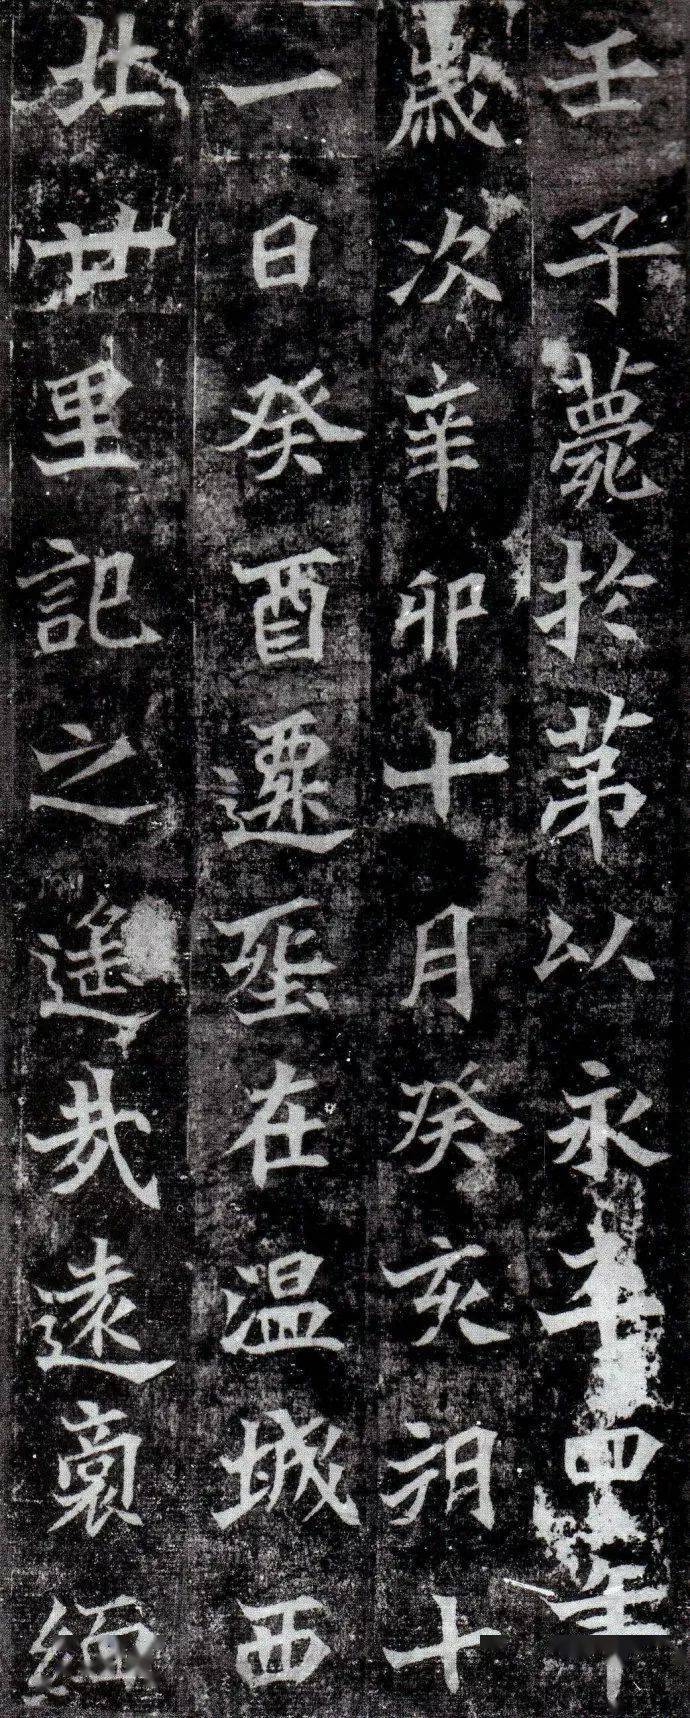 壬子薨於苐以永平四年
歲次辛卯十月癸亥朔十
一日癸酉遷葬在温城西
北廿里記之遙哉遠裔緬